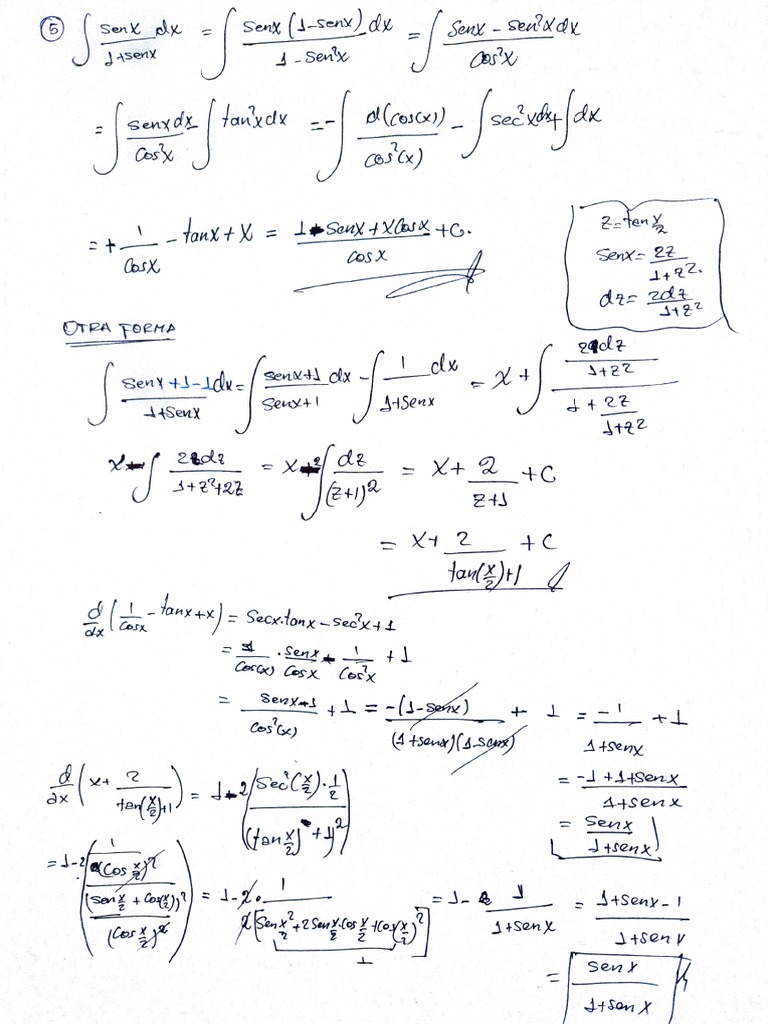 ⑤ ∫ senx/(1+senx) dx = ∫ senx(1-senx)/(1-sen²x) dx = ∫ (senx - sen²x dx)/cos²x
= ∫ senx dx/cos²x - ∫ tan²x dx = -∫ d(cos(x))/cos²(x) - ∫ sec²x dx + ∫ dx
= + 1/cosx - tanx + x = (1 - senx + xcosx)/cosx + C.
z = tan x/2
senx = 2z/(1+z²).
dz = 2dz/(1+z²)
OTRA FORMA
∫ (senx+1-1)/(1+senx) dx = ∫ (senx+1)/(senx+1) dx - ∫ 1/(1+senx) dx = x + ∫ (2dz/(1+z²))/(1 + 2z/(1+z²))
x - ∫ 2dz/(1+z²+2z) = x - 2∫ dz/(z+1)² = x + 2/(z+1) + C
= x + 2/(tan(x/2)+1) + C
d/dx (1/cosx - tanx + x) = secx.tanx - sec²x + 1
= 1/cos(x) · senx/cosx - 1/cos²x + 1
= (senx-1)/cos²(x) + 1 = -(1-senx)/((1+senx)(1-senx)) + 1 = -1/(1+senx) + 1
= (-1+1+senx)/(1+senx)
= senx/(1+senx)
d/dx (x + 2/(tan(x/2)+1)) = 1 - 2(sec²(x/2)·1/2/((tan x/2)+1)²)
= 1-2(1/(2(cos x/2)²)/((sen x/2 + cos(x/2))²/(cos x/2)²)) = 1 - 2· 1/(2[sen x/2² + 2sen x/2·cos x/2 + (cos x/2)²]) = 1 - 1/(1+senx) = (1+senx-1)/(1+senx)
1
= senx/(1+senx)